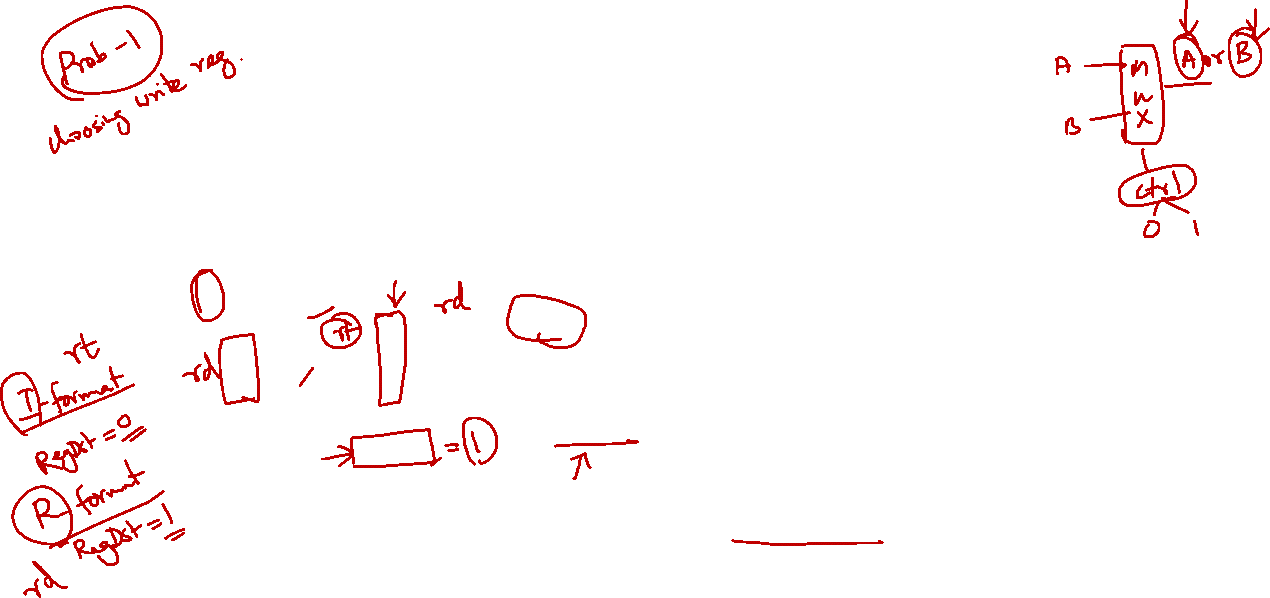 Prob-1
choosing write reg.
A
B
mux
A or B
ctrl
0 1
0
rt
rd
rt
rd
I-format
RegDst = 0
= 1
R-format
RegDst = 1
rd